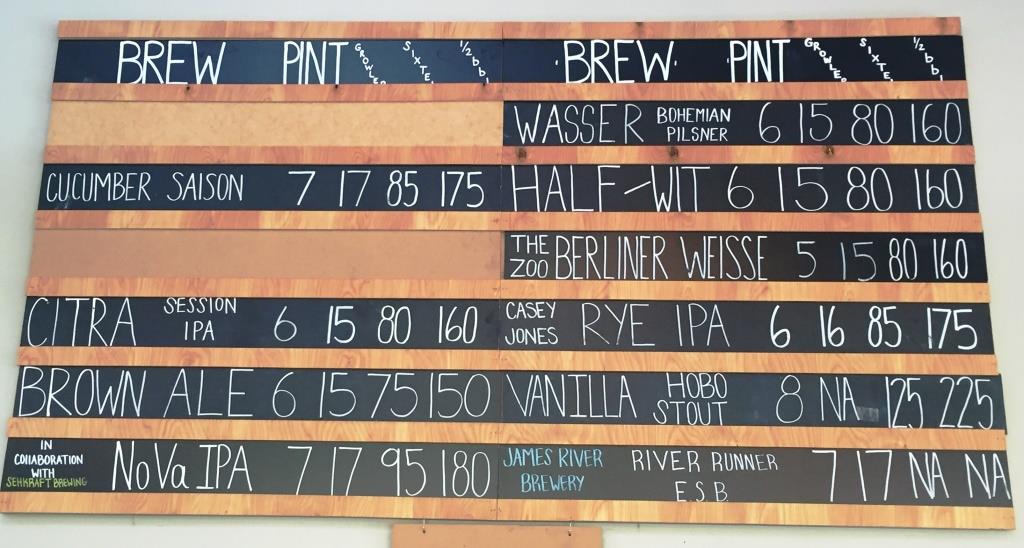 BREW PINT GROWLER SIXTEL 1/2 bbl
CUCUMBER SAISON 7 17 85 175
CITRA SESSION IPA 6 15 80 160
BROWN ALE 6 15 75 150
IN COLLABORATION WITH SEHKRAFT BREWING NoVa IPA 7 17 95 180
·BREW· PINT GROWLER SIXTEL 1/2 bbl
WASSER BOHEMIAN PILSNER 6 15 80 160
HALF-WIT 6 15 80 160
THE ZOO BERLINER WEISSE 5 15 80 160
CASEY JONES RYE IPA 6 16 85 175
VANILLA HOBO STOUT 8 NA 125 225
JAMES RIVER BREWERY RIVER RUNNER E.S.B. 7 17 NA NA